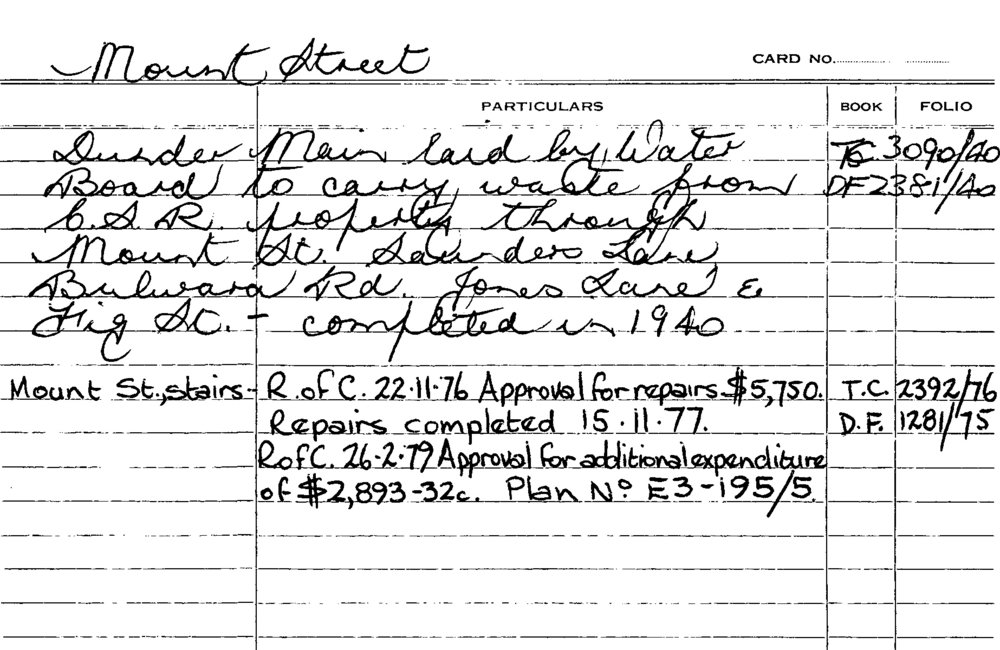 Mount Street CARD No.
PARTICULARS BOOK FOLIO
Dunder Main laid by Water TC 3090/40
Board to carry waste from DF 2381/40
C.S.R. property through
Mount St. Saunders Lane
Bulwara Rd. Jones Lane &
Fig St. - completed in 1940
Mount St., stairs - R. of C. 22.11.76 Approval for repairs $5,750. T.C. 2392/76
Repairs completed 15.11.77. D.F. 1281/75
R of C. 26.2.79 Approval for additional expenditure
of $2,893-32c. Plan No E3-195/5.